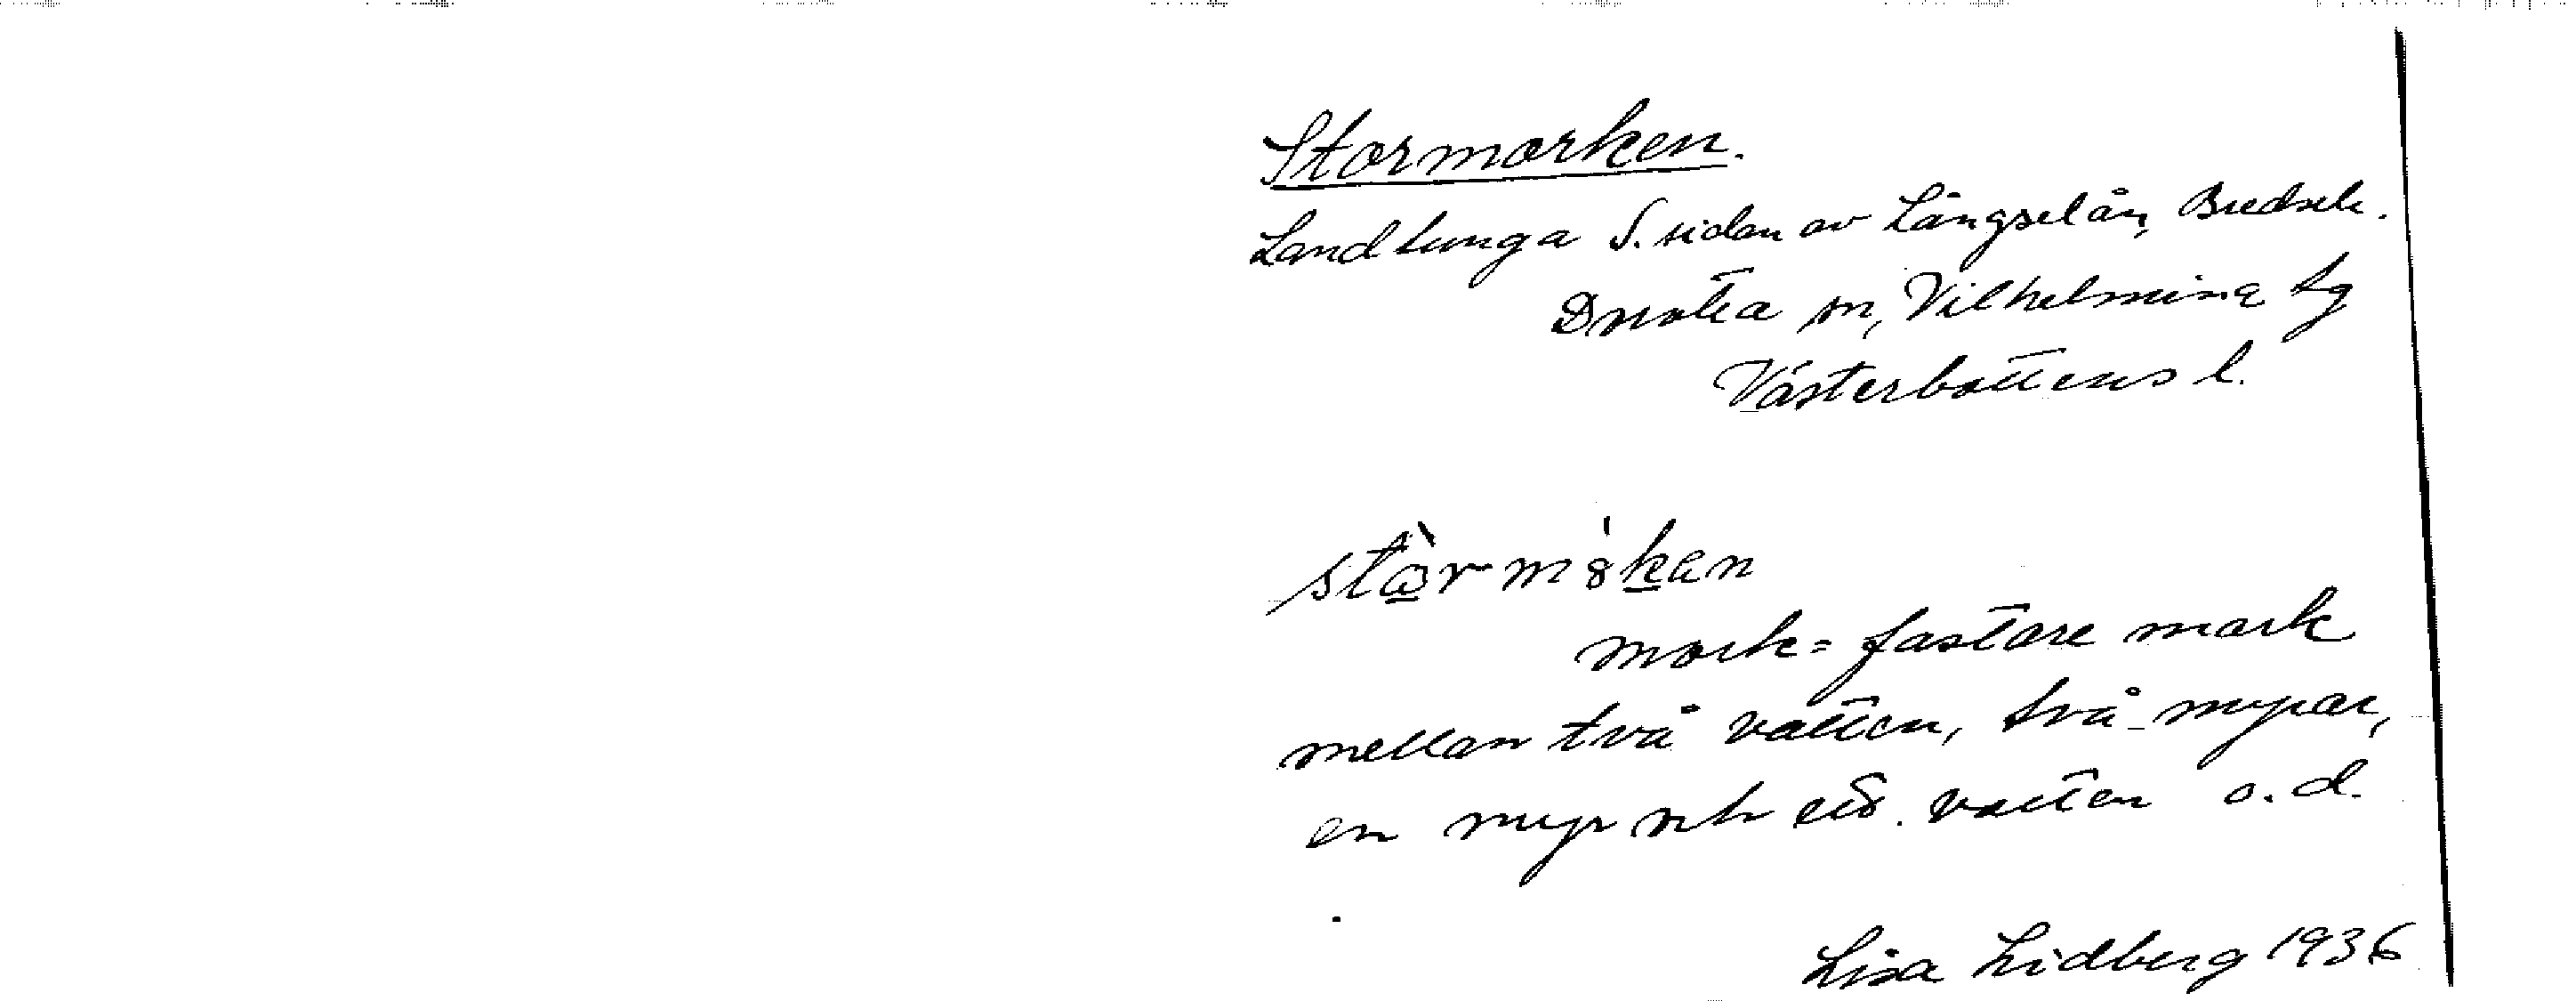 Stormorken.
Landtunga S. sidan av Långselån, Bredsele.
Dorotea sn, Vilhelmina tg
Västerbottens l.
stòrmòkan
mork = fastare mark
mellan två vatten, två myrar,
en myr och ett vatten o.d.
Lisa Lidberg 1936